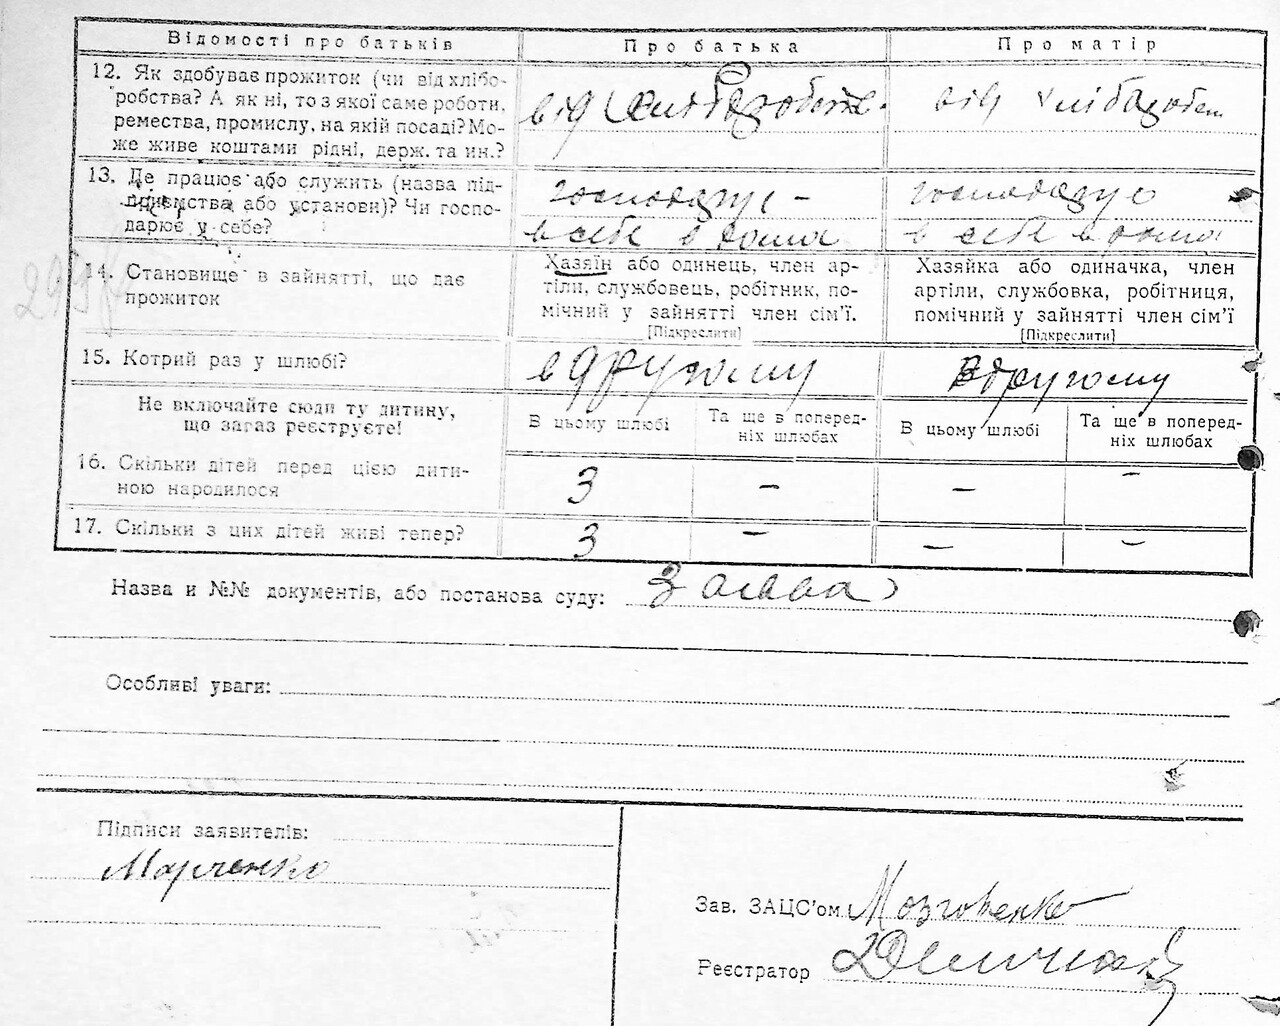 Відомості про батьків
Про батька
Про матір
12. Як здобуває прожиток (чи від хлібо-
робства? А як ні, то з якої саме роботи,
ремества, промислу, на якій посаді? Мо-
же живе коштами рідні, держ. та ин.?
від хліборобств.
від хлібороб
13. Де працює або служить (назва під-
приємства або установи)? Чи госпо-
дарює у себе?
господарує -
в себе в дома
господарує
в себе в дома
14. Становище в зайнятті, що дає
прожиток
Хазяїн або одинець, член ар-
тіли, службовець, робітник, по-
мічний у зайнятті член сім'ї.
[Підкреслити]
Хазяйка або одиначка, член
артіли, службовка, робітниця,
помічний у зайнятті член сім'ї
[Підкреслити]
15. Котрий раз у шлюбі?
в другому
в другому
Не включайте сюди ту дитину,
що зараз реєструєте!
В цьому шлюбі
Та ще в поперед-
ніх шлюбах
В цьому шлюбі
Та ще в поперед-
ніх шлюбах
16. Скільки дітей перед цією дити-
ною народилося
3 – – –
17. Скільки з цих дітей живі тепер?
3 – – –
Назва и №№ документів, або постанова суду: Заява
Особливі уваги:
Підписи заявителів:
Марченко
Зав. ЗАЦС'ом Мозговенко
Реєстратор